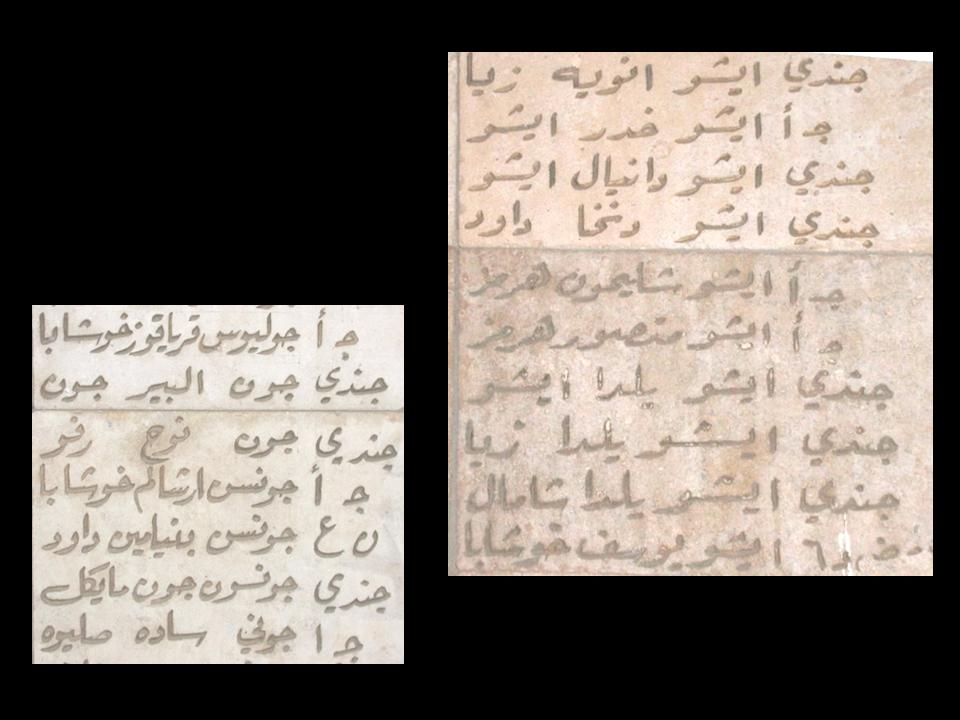 جندي ايشو انويه زيا
ج أ ايشو خدر ايشو
جندي ايشو دانيال ايشو
جندي ايشو دنخا داود
ج أ ايشو شايمون هرمز
ج أ ايشو منصور هرمز
جندي ايشو يلدا ايشو
جندي ايشو يلدا زيا
جندي ايشو يلدا شامال
ايشو يوسف خوشابا
ج أ جوليوس قرياقوز خوشابا
جندي جون البير جون
جندي جون نوح رفو
ج أ جونسن ارشالم خوشابا
ن ع جونسن بنيامين داود
جندي جونسون جون مايكل
ج ا جوني ساده صليوه